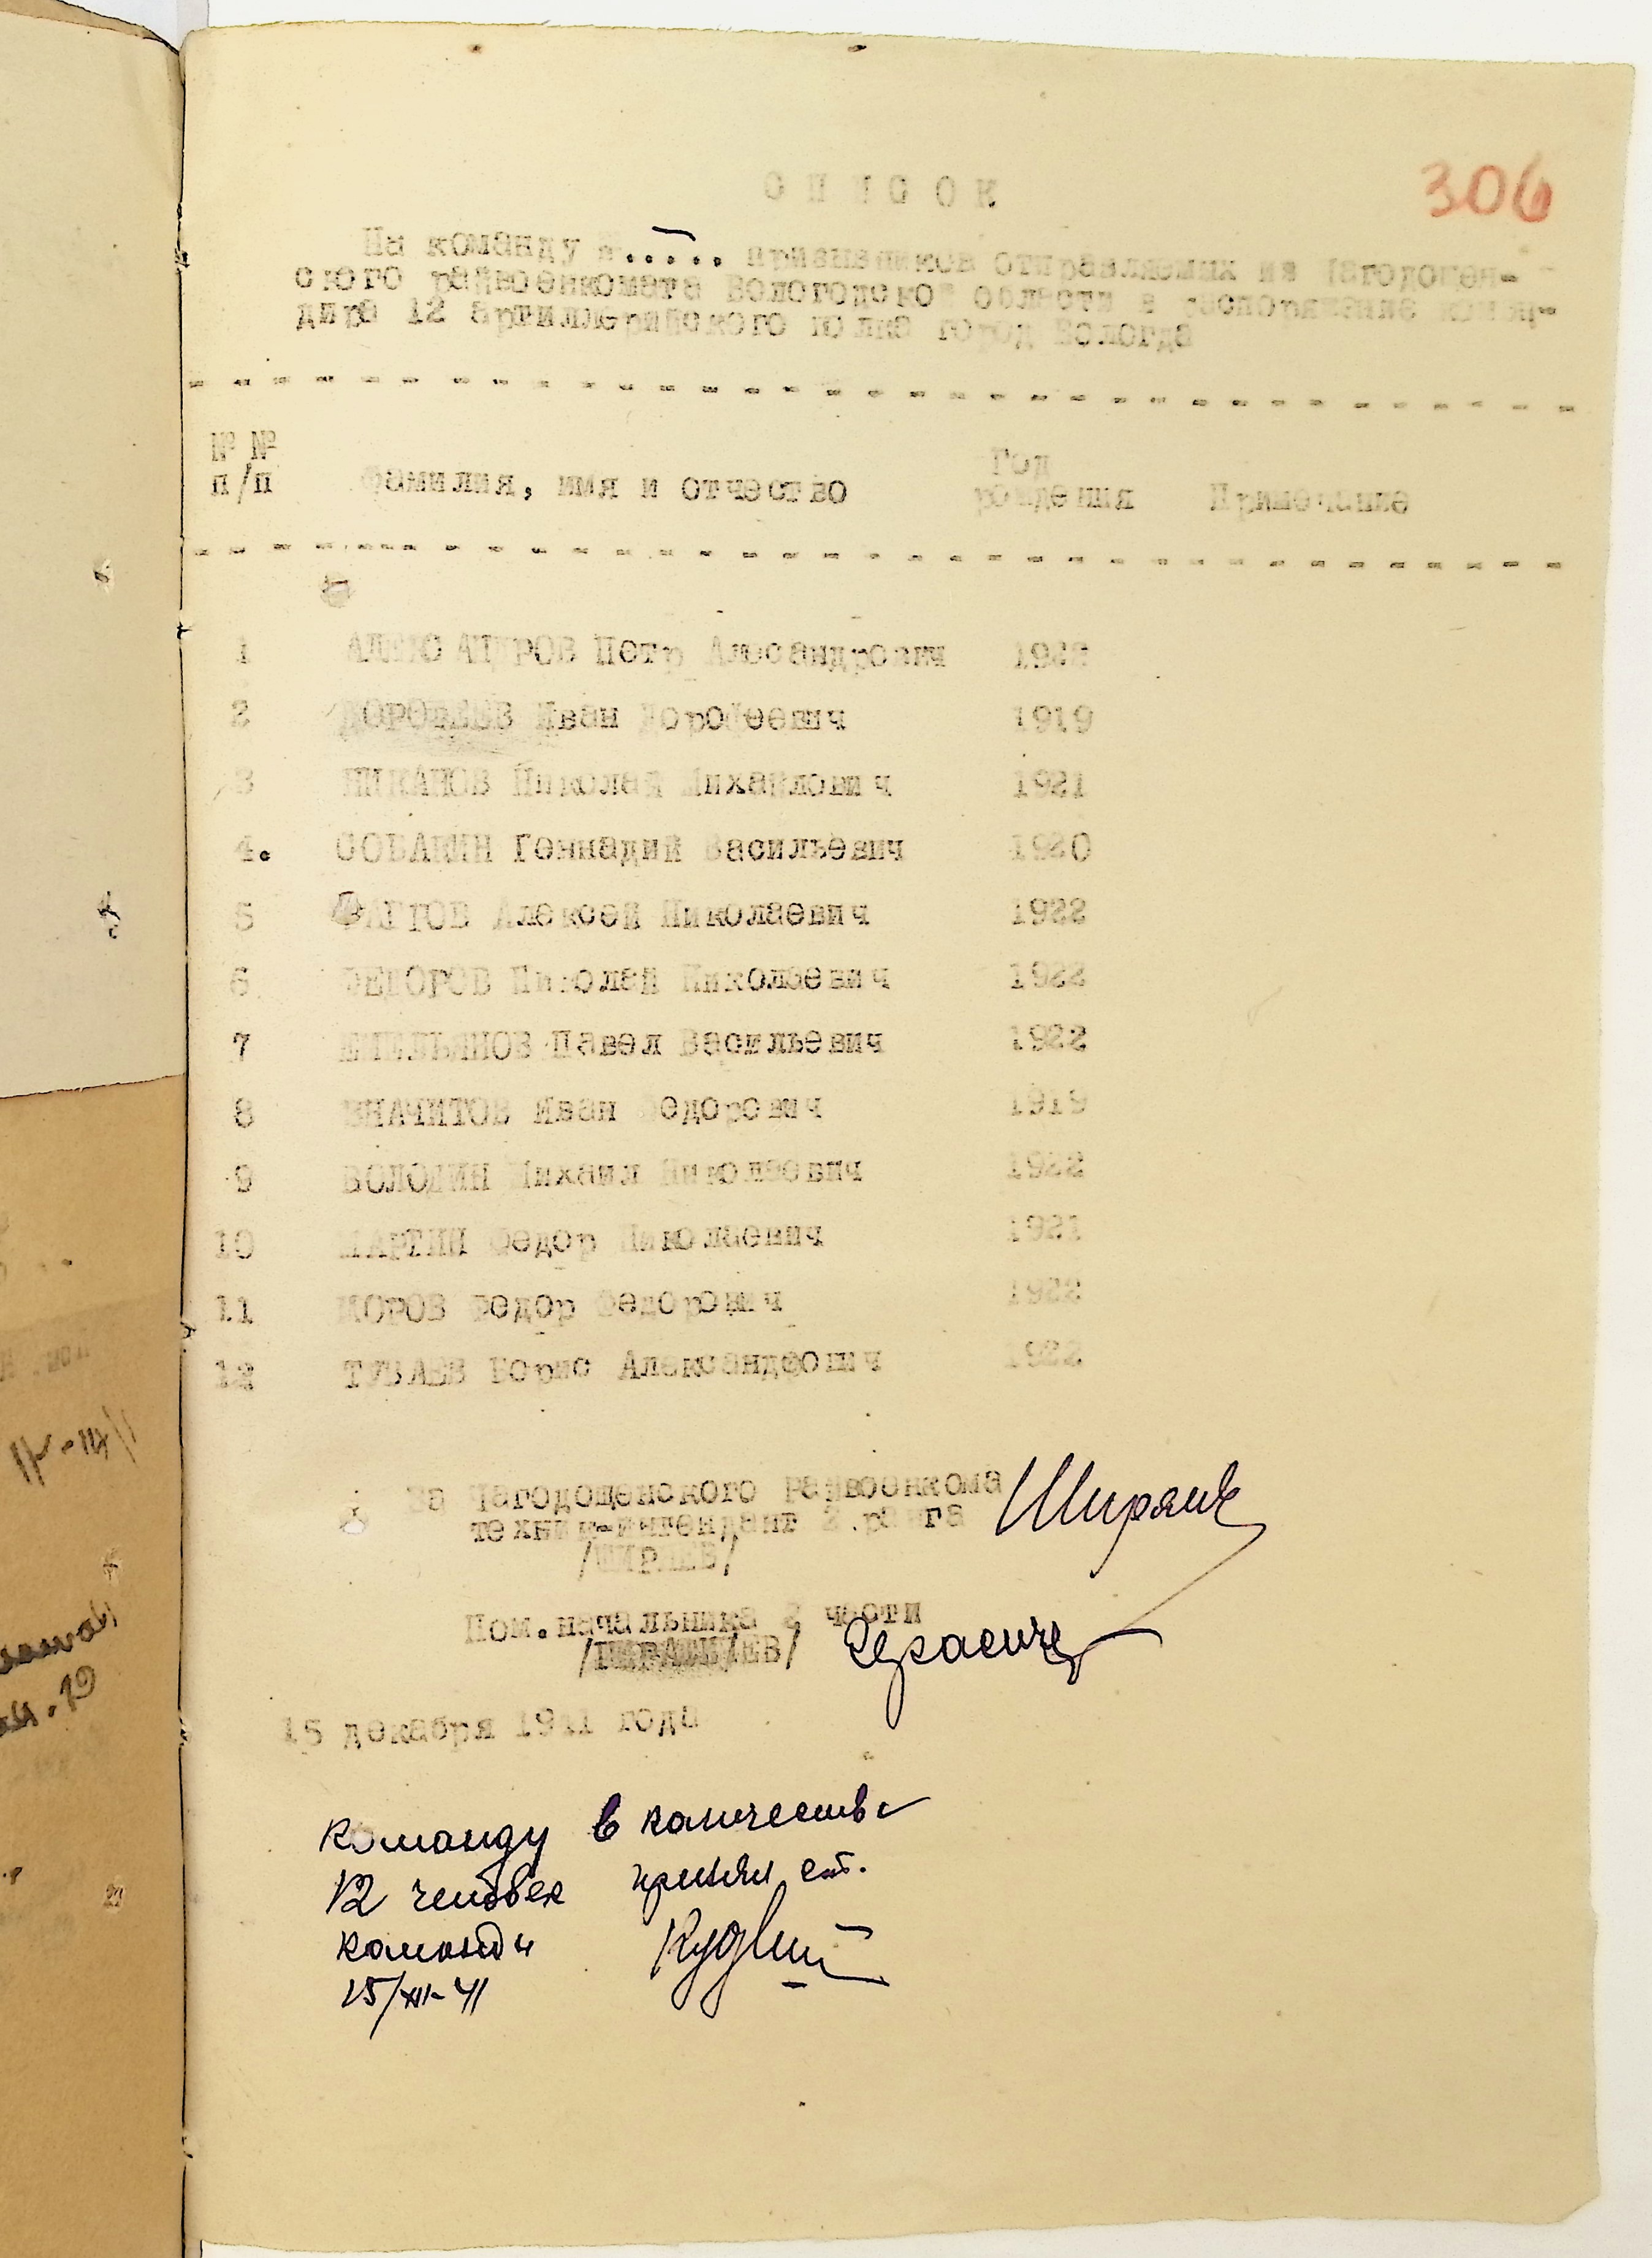 306
С П И С О К
На команду №..... призывников отправляемых из Чагодощен-
ского райвоенкомата Вологодской области в распоряжение коман-
дира 12 артиллерийского полка город Вологда
№ №
п/п Фамилия, имя и отчество Год
рождения Примечание
1 АЛЕКСАНДРОВ Петр Алесандрович
2 ДОРОФЕЕВ Иван Дорофеевич 1919
3 НИКАНОВ Николай Михайлович 1921
4. СОБАНИН Геннадий Васильевич 1920
5 Алексей Николаевич 1922
6 Николай Николаевич 1922
7 ЕМЕЛЬЯНОВ Павел Васильевич 1922
8 Иван Федорович 1919
9 ВОЛОДИН Михаил Николаевич 1922
10 МАРТИН Федор Николаевич 1921
11 Федор Федорович 1922
12 ТУВАЕВ Борис Александрович 1922
За Чагодощенского Райвоенкома
техник-интендант 2 ранга
/ШИРЯЕВ/
Пом.начальника 2 части
15 декабря 1941 года
Команду в количестве
12 человек принял ст.
команды
15/XII-41